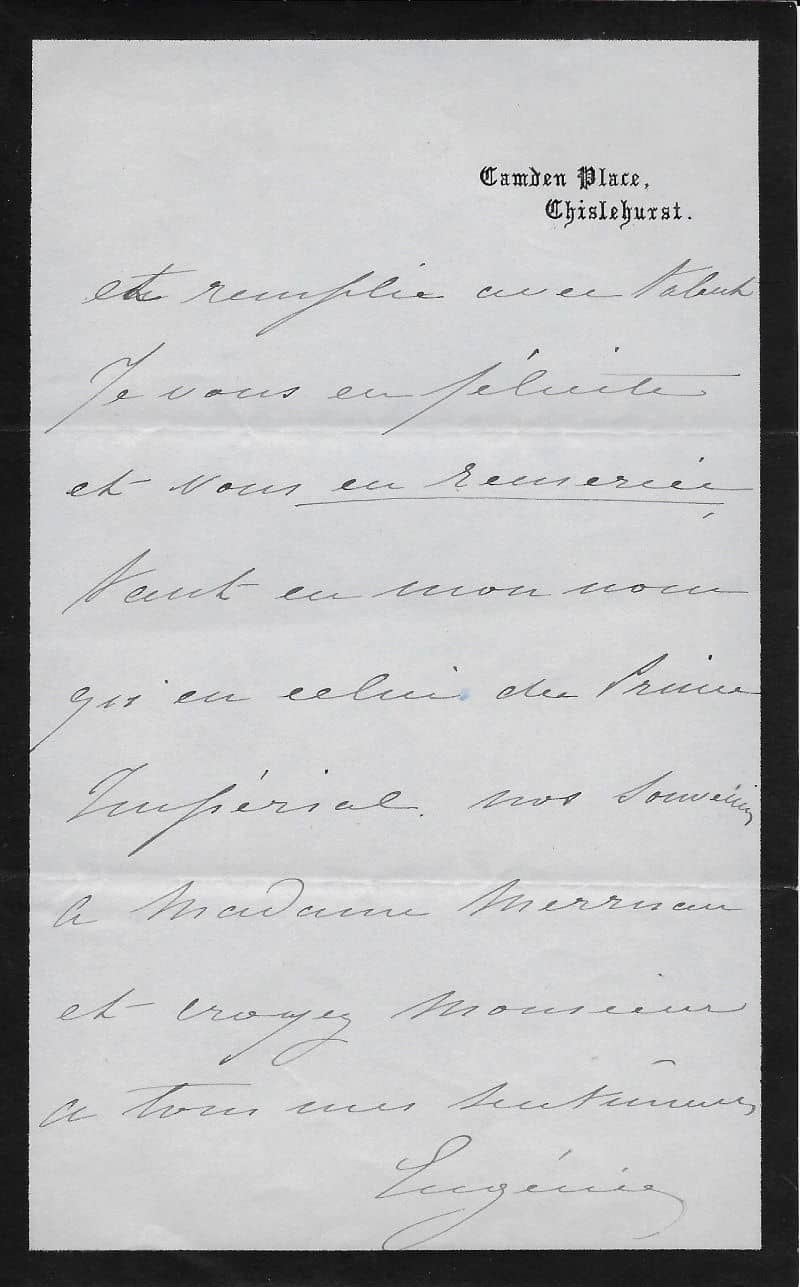 Camden Place,
Chislehurst.
et remplie avec talent
Je vous en félicite
et vous en remercie
tant en mon nom
qu'en celui du Prince
Impérial. nos souvenirs
a Madame Merriman
et croyez Monsieur
a tous mes sentiments
Eugénie